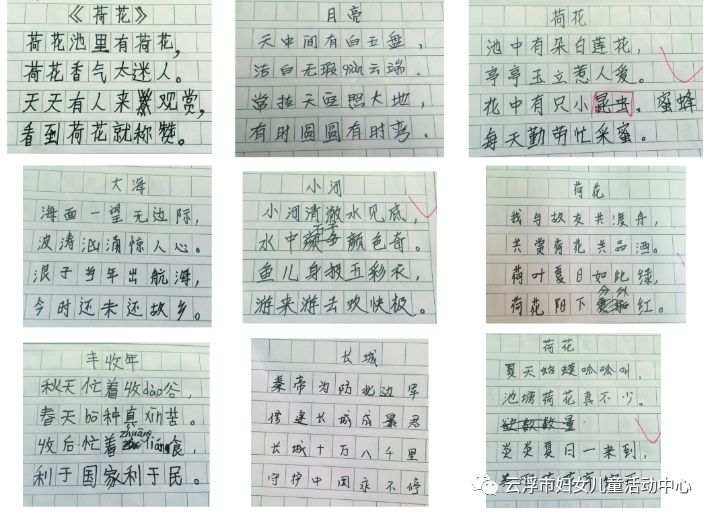 《荷花》
荷花池里有荷花,
荷花香气太迷人。
天天有人来观赏,
看到荷花就称赞。
月亮
天中间有白玉盘,
洁白无瑕śān云端。
常挂天空照大地,
有时圆圆有时弯。
荷花
池中有朵白莲花,
亭亭玉立惹人爱。
花中有只小昆虫。蜜蜂
每天勤劳忙采蜜。
大海
海面一望无边际,
波涛汹涌惊人心。
浪子当年出航海,
今时还未还故乡。
小河
小河清澈水见底,
水中颜色奇。
鱼儿身披五彩衣,
游来游去欢快极。
荷花
我与故友共渡舟,
共赏荷花共品酒。
荷叶夏日如此绿,
荷花阳下分外红。
丰收年
秋天忙着收dào谷,
春天bō种真xīn苦。
收后忙着zhuāng liáng食,
利于国家利于民。
长城
秦帝为防北边军
修建长城成暴君
长城十万八千里
守护中国永不停
荷花
夏天蛤蟆呱呱叫,
池塘荷花真不少。
炎炎夏日一来到,
云浮市妇女儿童活动中心